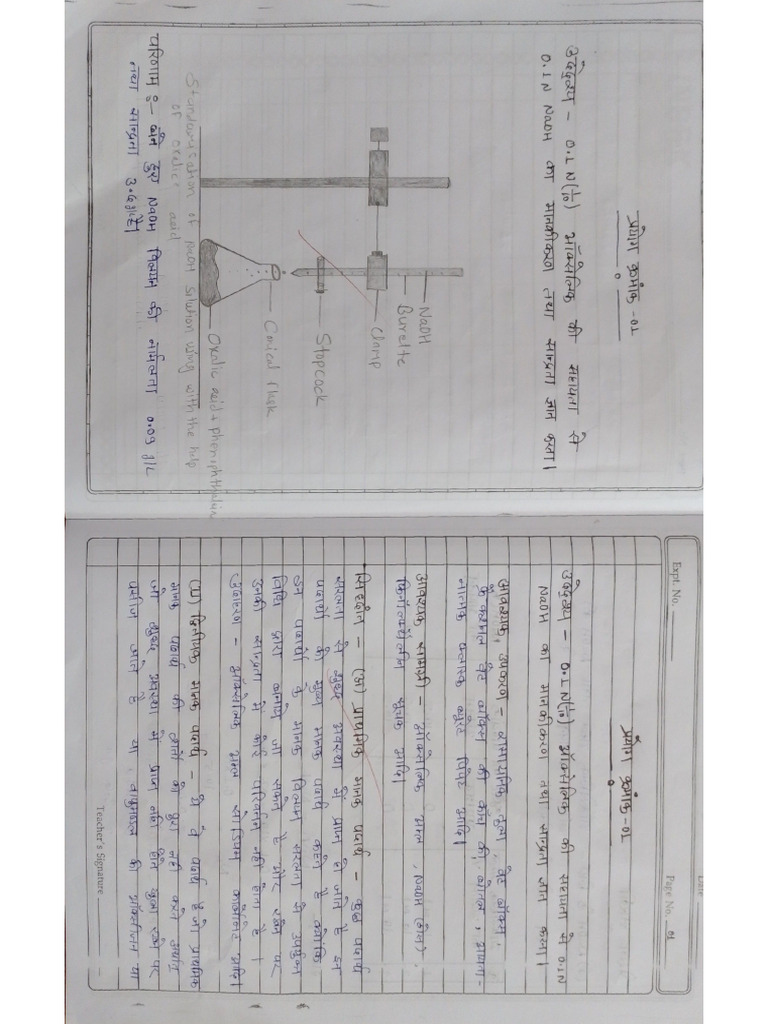 प्रयोग क्रमांक - 01
उद्देश्य - 0.1 N (1/10) ऑक्सेलिक की सहायता से
0.1 N NaOH का मानकीकरण तथा सान्द्रता ज्ञात करना।
NaOH
Burette
Clamp
Stopcock
Conical flask
Oxalic acid + phenolphthalein
Standardisation of NaOH solution using with the help
of oxalic acid
परिणाम :- दी हुई NaOH विलयन की नार्मलता 0.09 g/L
तथा सान्द्रता 3.6 g/L है।
Date
Expt. No.
Page No. 01
प्रयोग क्रमांक - 01
उद्देश्य - 0.1 N (1/10) ऑक्सेलिक की सहायता से 0.1 N
NaOH का मानकीकरण तथा सान्द्रता ज्ञात करना।
आवश्यक उपकरण - रासायनिक तुला, वेट बॉक्स,
नात्मक फ्लास्क ब्यूरेट पिपेट आदि।
आवश्यक सामग्री - ऑक्सेलिक अम्ल, NaOH (ठोस),
फिनॉल्फ्थेलीन सूचक आदि।
सिद्धांत - (अ) प्राथमिक मानक पदार्थ - कुछ पदार्थ
सरलता से शुद्ध अवस्था में प्राप्त हो जाते है इन
पदार्थो को मुख्य मानक पदार्थ कहते है क्योंकि
इन पदार्थो के मानक विलयन सरलता से उपयुक्त
विधि द्वारा बनाये जा सकते है और रखने पर
उनकी सान्द्रता मे कोई परिवर्तन नही होता है।
उदाहरण - ऑक्सेलिक अम्ल सोडियम कार्बोनेट आदि।
(ब) द्वितीयक मानक पदार्थ - ये वे पदार्थ है जो प्राथमिक
मानक पदार्थ की शर्तो को पूरा नही करते अर्थात्
जो शुद्ध अवस्था में प्राप्त नही होते खुला रखने पर
पसीज जाते है या वायुमण्डल की ऑक्सीजन या
Teacher's Signature